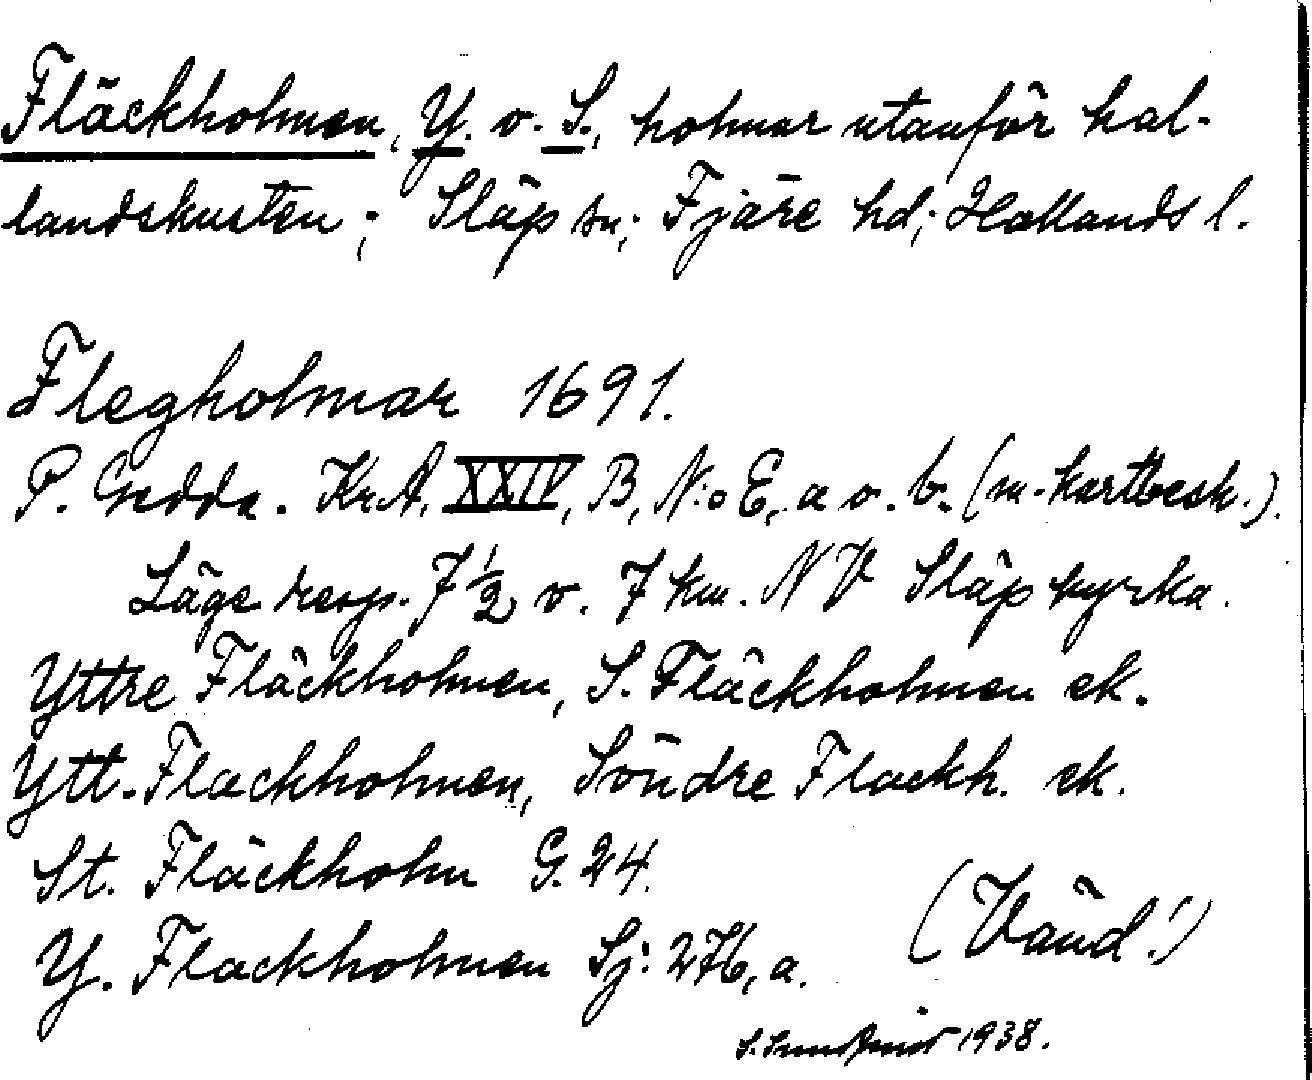 Fläckholmen, Y. o. S., holmar utanför hal-
landskusten; Släp sn; Fjäre hd; Hallands l.
Flegholmar 1691.
P. Gedda. Kr.A. XXIV, B, N:o E, a o. b. (m. kartbesk.).
Läge resp. 7 1/2 o. 7 km. NV Släp kyrka.
Yttre Fläckholmen, S. Fläckholmen ek.
Ytt. Flackholmen, Söndre Flackh. sk.
St. Fläckholm G. 24.
Y. Flackholmen Sj: 276, a.
(Vänd!)
1938.